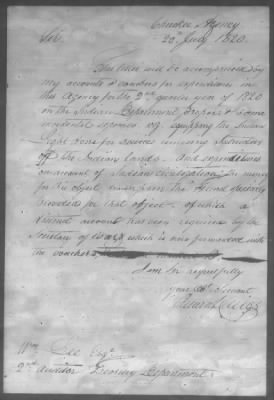 Cherokee Agency
20th July 1820.
Sir,
This letter will be accompanied by
my accounts & vouchers for expenditures in
this Agency for the 2nd quarter year of 1820
on the Indian Department proper & some
incidental expenses viz equipping the Indian
Light horse for services removing intruders
off the Indian lands. And expenditures
on account of Indian civilization the money
for the object taken from the fund
provided for that object of which a
account has been required by the
Secretary of War & which is now forwarded with
the vouchers
I am Sir respectfully
your Obt Servant
Wm Lee Esqr
2nd Auditor Treasury Department